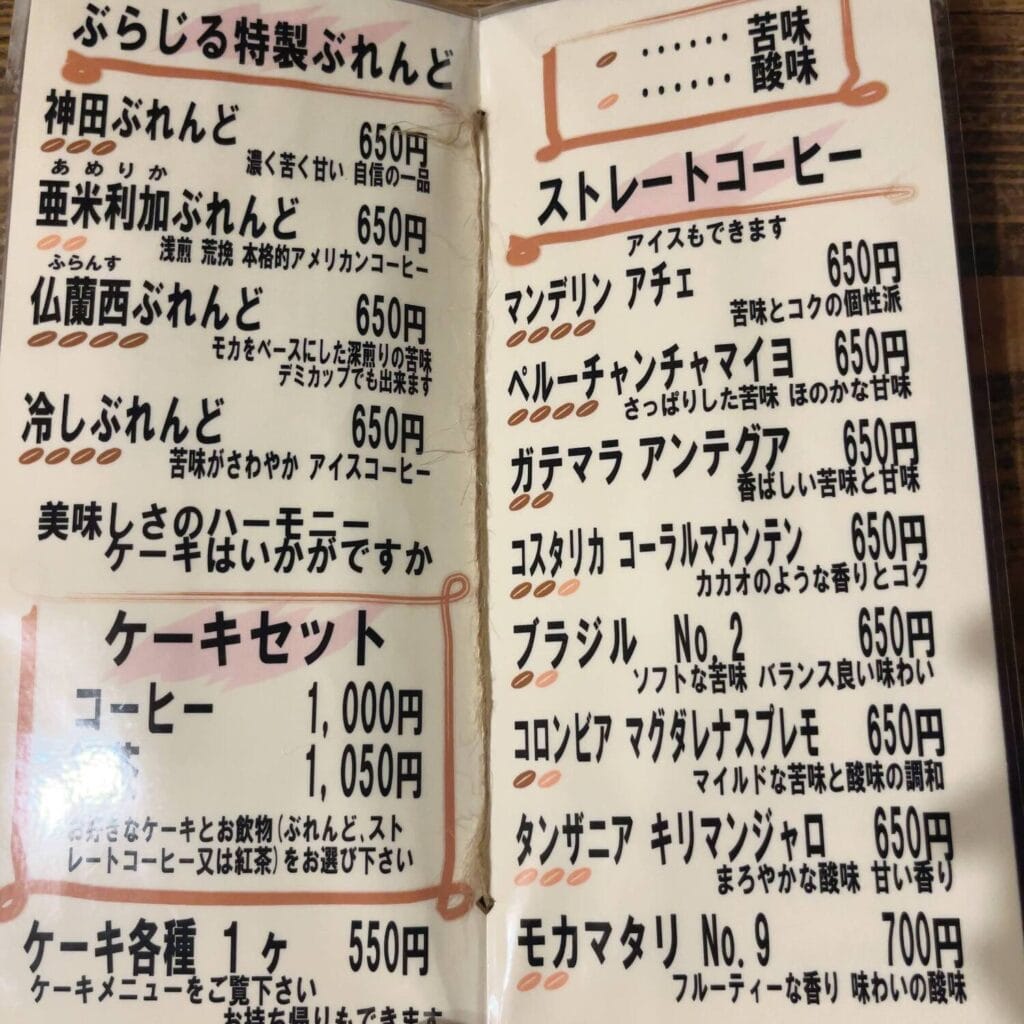 ぶらじる特製ぶれんど
神田ぶれんど 650円
濃く苦く甘い 自信の一品
あめりか
亜米利加ぶれんど 650円
浅煎 荒挽 本格的アメリカンコーヒー
ふらんす
仏蘭西ぶれんど 650円
モカをベースにした深煎りの苦味
デミカップでも出来ます
冷しぶれんど 650円
苦味がさわやか アイスコーヒー
美味しさのハーモニー
ケーキはいかがですか
ケーキセット
コーヒー 1,000円
1,050円
お好きなケーキとお飲物(ぶれんど、スト
レートコーヒー又は紅茶)をお選び下さい
ケーキ各種 1ヶ 550円
ケーキメニューをご覧下さい
お持ち帰りもできます
...... 苦味
...... 酸味
ストレートコーヒー
アイスもできます
マンデリン アチェ 650円
苦味とコクの個性派
ペルーチャンチャマイヨ 650円
さっぱりした苦味 ほのかな甘味
ガテマラ アンテグア 650円
香ばしい苦味と甘味
コスタリカ コーラルマウンテン 650円
カカオのような香りとコク
ブラジル No.2 650円
ソフトな苦味 バランス良い味わい
コロンビア マグダレナスプレモ 650円
マイルドな苦味と酸味の調和
タンザニア キリマンジャロ 650円
まろやかな酸味 甘い香り
モカマタリ No.9 700円
フルーティーな香り 味わいの酸味